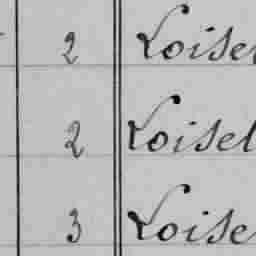 2 Loisel
2 Loisel
3 Loise